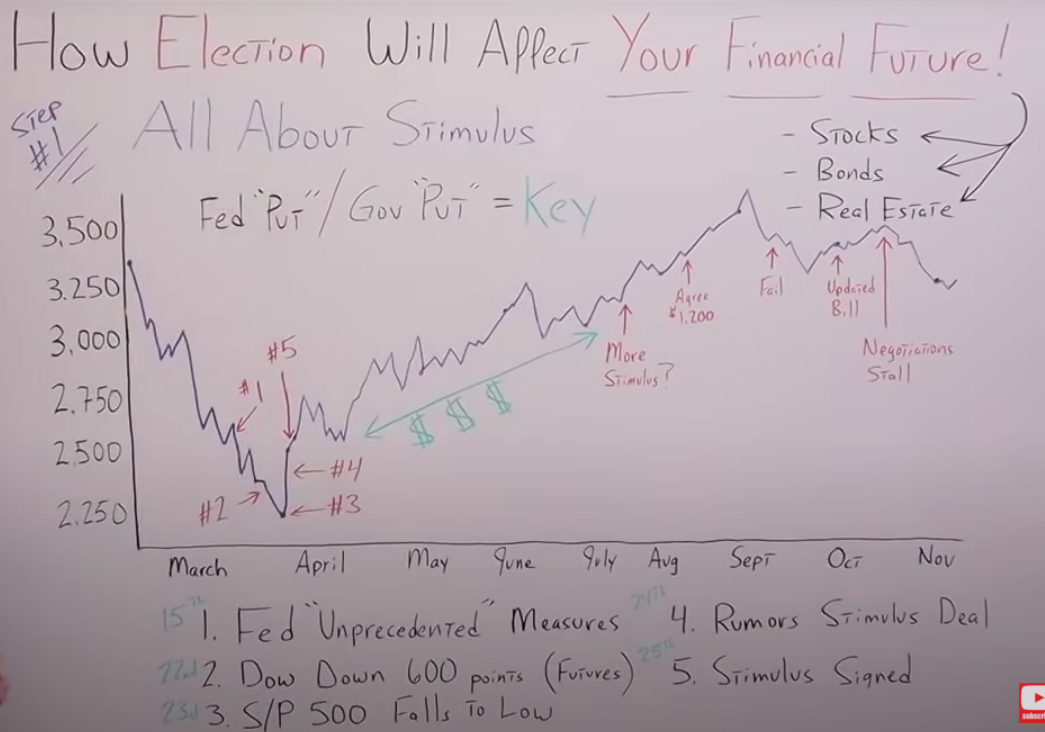 How Election Will Affect Your Financial Future!
Step
#1
All About Stimulus
- Stocks
- Bonds
- Real Estate
Fed "Put" / Gov "Put" = Key
3,500
3.250
3,000
2,750
2,500
2.250
#1
#2
#3
#4
#5
$ $ $
More
Stimulus?
Agree
$1,200
Fail
Updated
Bill
Negotiations
Stall
March April May June July Aug Sept Oct Nov
15th 1. Fed "Unprecedented" Measures
22nd 2. Dow Down 600 points (Futures)
23d 3. S/P 500 Falls To Low
24th 4. Rumors Stimulus Deal
25th 5. Stimulus Signed